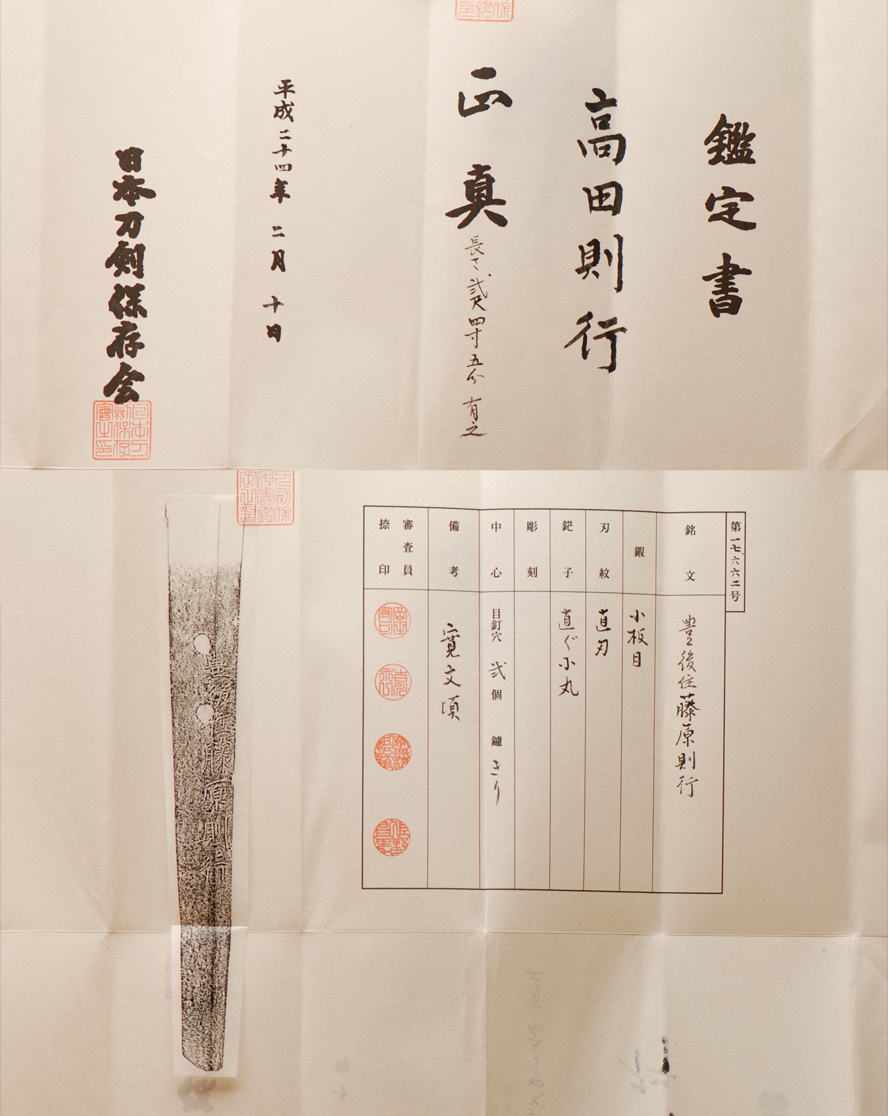 鑑定書
高田則行
正真
長さ弐尺四寸五分有之
平成二十四年二月十日
日本刀剣保存会
第一七六六二号
銘文
豊後住藤原則行
鍜
小板目
刃紋
直刃
鋩子
直ぐ小丸
彫刻
中心
目釘穴 弐個 鑢 きり
備考
寛文頃
審査員
捺印
藤原則行